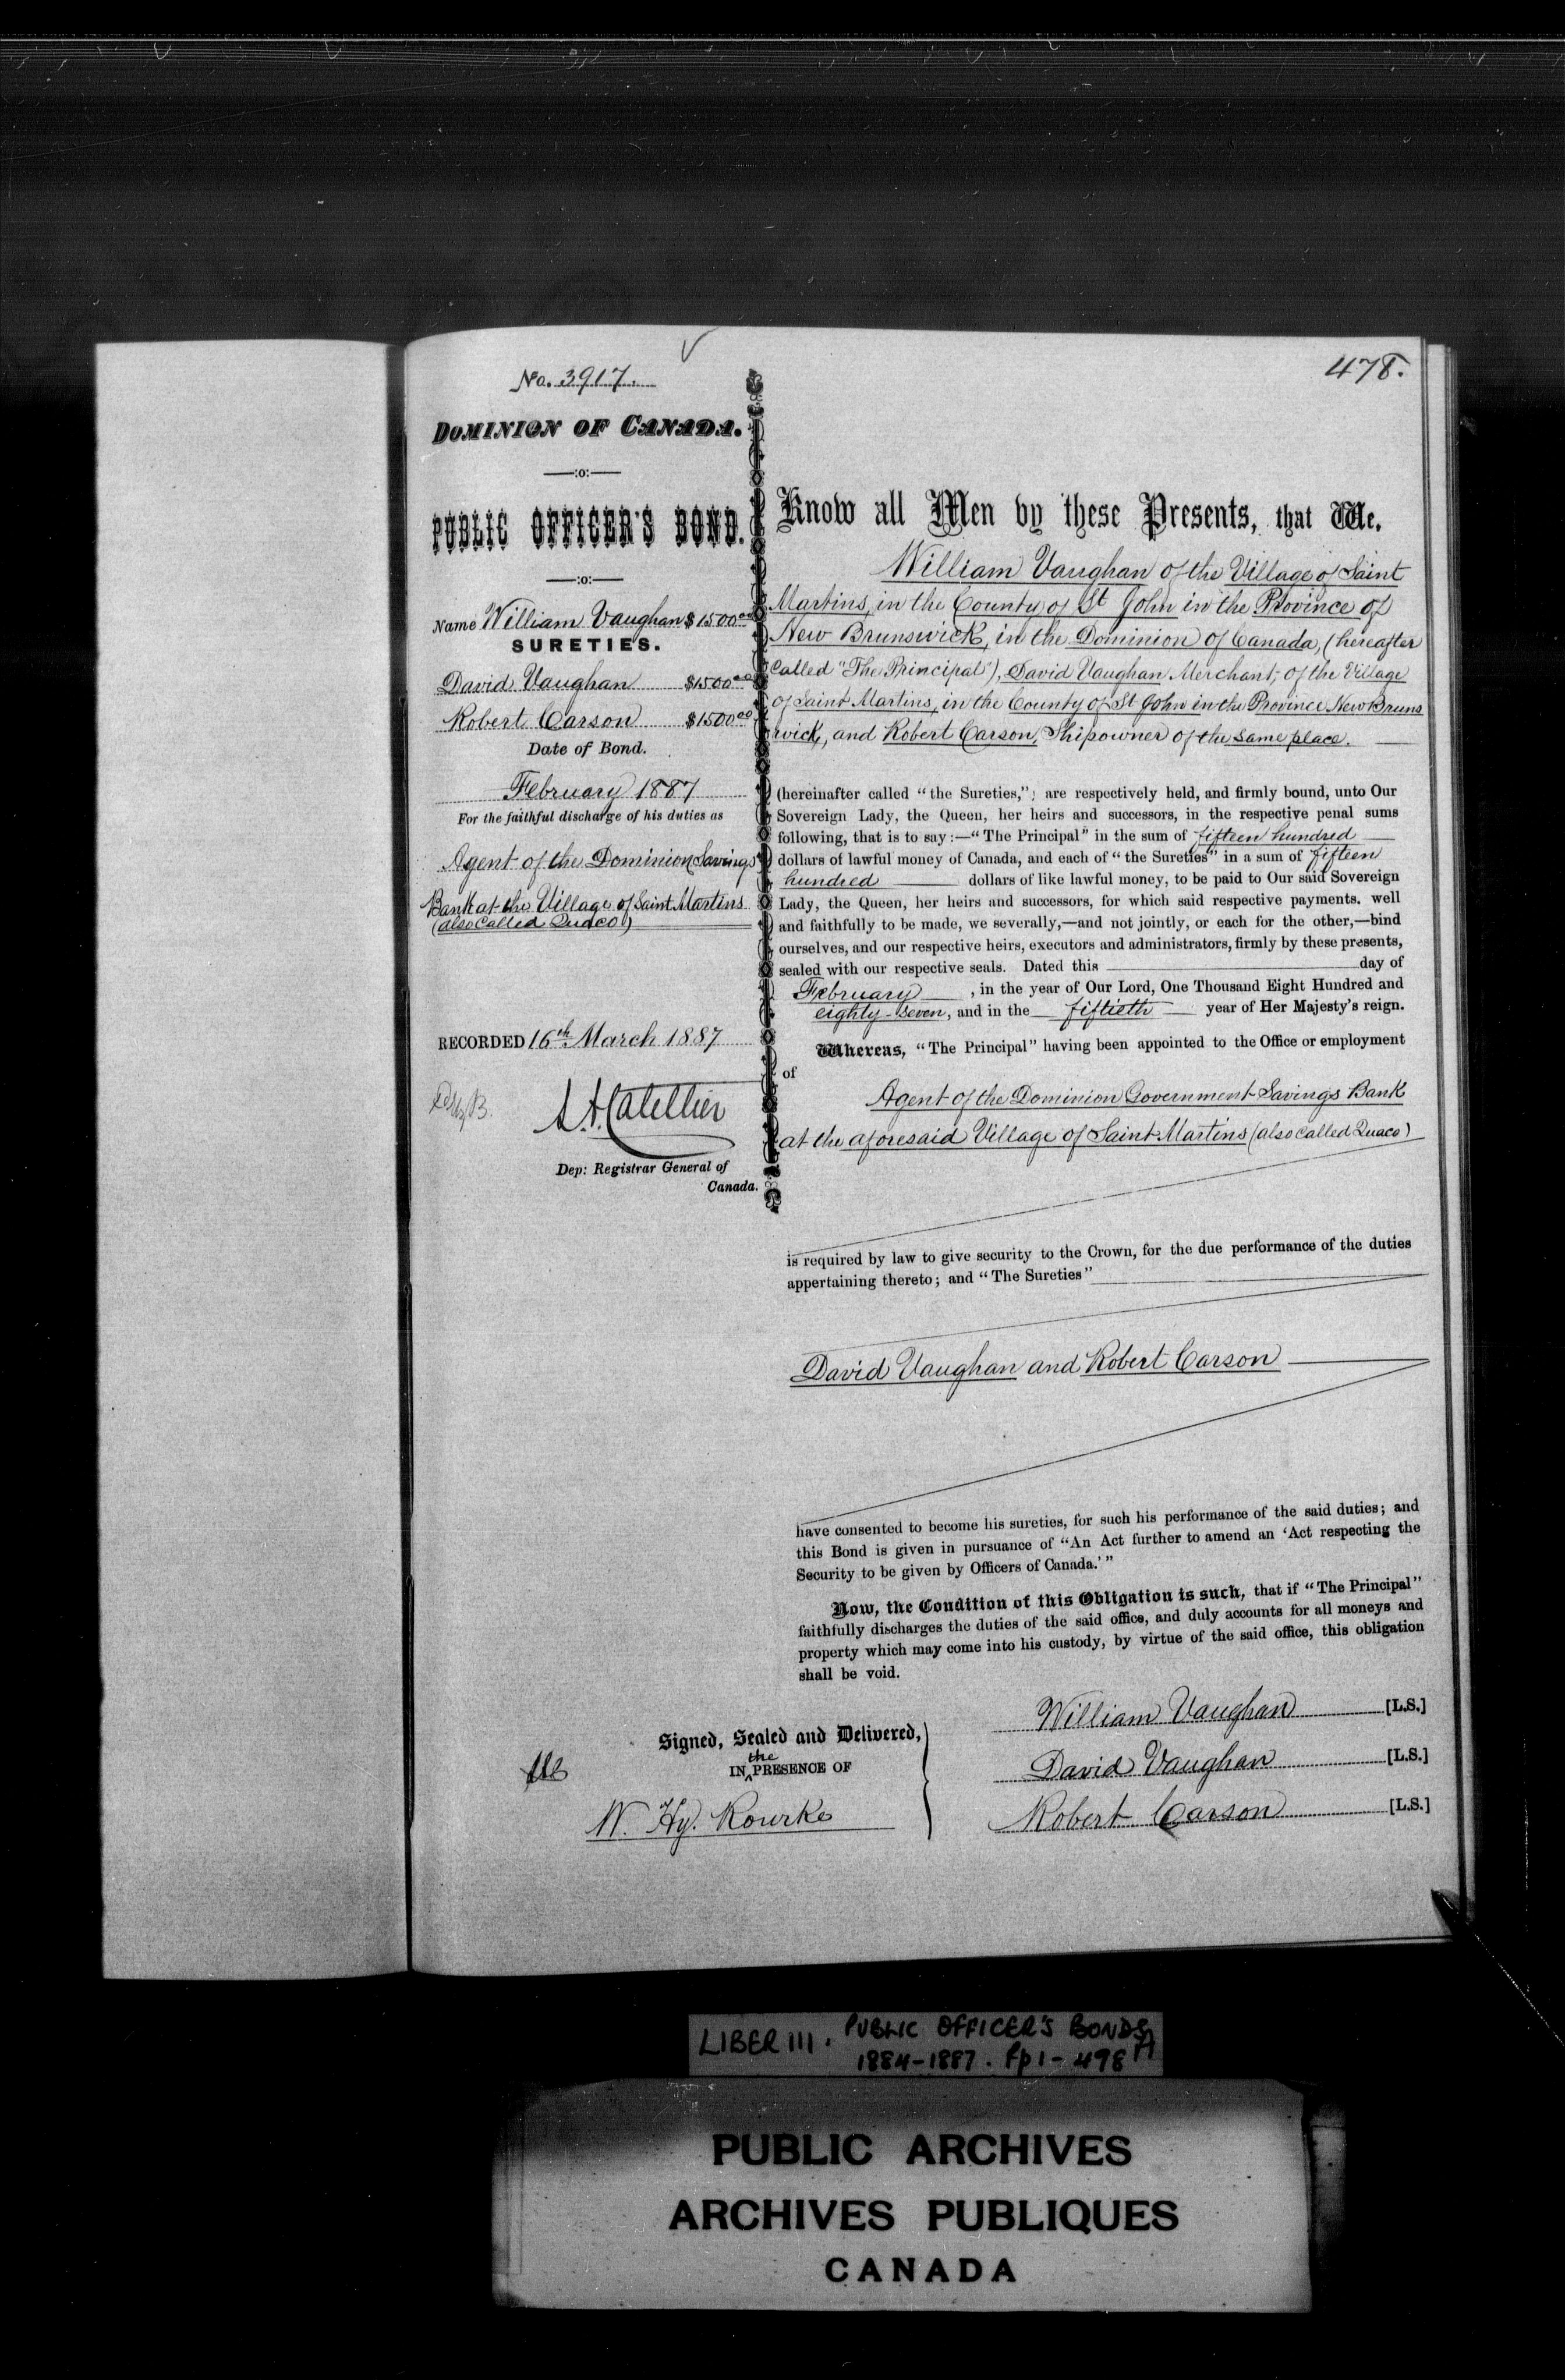 No. 3917.
478.
DOMINION OF CANADA.
—:o:—
PUBLIC OFFICER'S BOND.
—:o:—
Name William Vaughan $1500.00
SURETIES.
David Vaughan $1500.00
Robert Carson $1500.00
Date of Bond.
February 1887
For the faithful discharge of his duties as
Agent of the Dominion Savings
Bank at the Village of Saint Martins
(also called Quaco)
RECORDED 16th March 1887
L. A. Catellier
Dep: Registrar General of
Canada.
Know all Men by these Presents, that We,
William Vaughan of the Village of Saint
Martins, in the County of St John in the Province of
New Brunswick, in the Dominion of Canada, (hereafter
called "The Principal"), David Vaughan Merchant, of the Village
of Saint Martins, in the County of St John in the Province New Bruns
wick, and Robert Carson, Shipowner of the same place.
(hereinafter called "the Sureties,"; are respectively held, and firmly bound, unto Our
Sovereign Lady, the Queen, her heirs and successors, in the respective penal sums
following, that is to say:—"The Principal" in the sum of fifteen hundred
dollars of lawful money of Canada, and each of "the Sureties" in a sum of fifteen
hundred dollars of like lawful money, to be paid to Our said Sovereign
Lady, the Queen, her heirs and successors, for which said respective payments. well
and faithfully to be made, we severally,—and not jointly, or each for the other,—bind
ourselves, and our respective heirs, executors and administrators, firmly by these presents,
sealed with our respective seals. Dated this day of
February, in the year of Our Lord, One Thousand Eight Hundred and
eighty-seven, and in the fiftieth year of Her Majesty's reign.
Whereas, "The Principal" having been appointed to the Office or employment
of
Agent of the Dominion Government Savings Bank
at the aforesaid Village of Saint Martins (also called Quaco)
is required by law to give security to the Crown, for the due performance of the duties
appertaining thereto; and "The Sureties"
David Vaughan and Robert Carson
have consented to become his sureties, for such his performance of the said duties; and
this Bond is given in pursuance of "An Act further to amend an 'Act respecting the
Security to be given by Officers of Canada.'"
Now, the Condition of this Obligation is such, that if "The Principal"
faithfully discharges the duties of the said office, and duly accounts for all moneys and
property which may come into his custody, by virtue of the said office, this obligation
shall be void.
Signed, Sealed and Delivered,
IN the PRESENCE OF
W. Hy. Rourke
William Vaughan [L.S.]
David Vaughan [L.S.]
Robert Carson [L.S.]
LIBER 111. PUBLIC OFFICER'S BONDS
1884-1887. Pp 1-498
PUBLIC ARCHIVES
ARCHIVES PUBLIQUES
CANADA